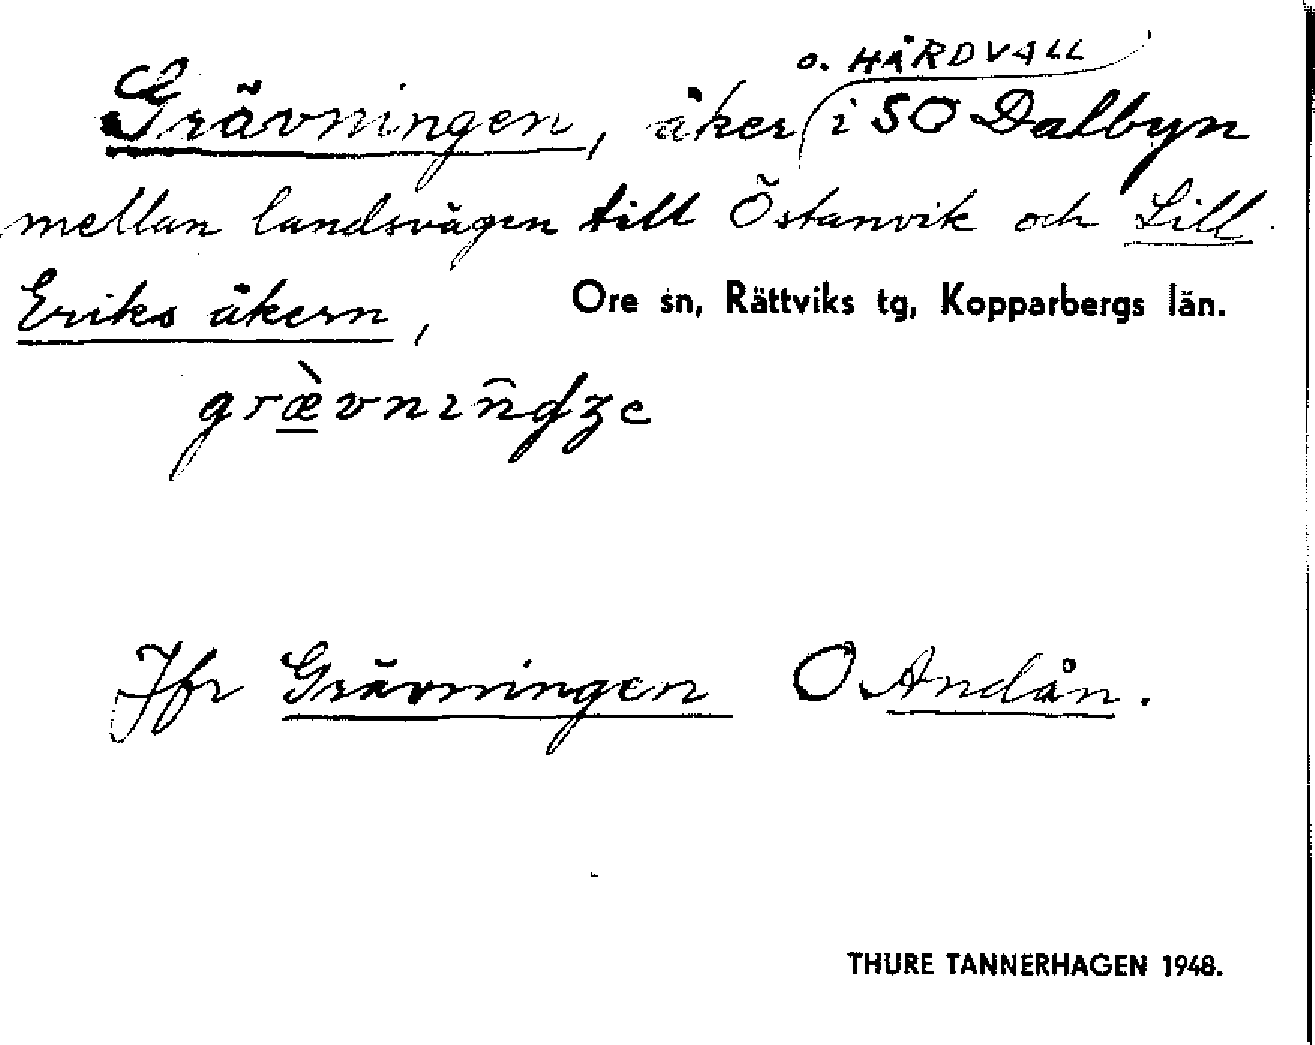 o. HÅRDVALL
Grävningen, åker i SO Dalbyn
mellan landsvägen till Östanvik och Lill
Eriks åkern,
Ore sn, Rättviks tg, Kopparbergs län.
græ̀vnın̂ʤe
Jfr Grävningen O Andån.
THURE TANNERHAGEN 1948.